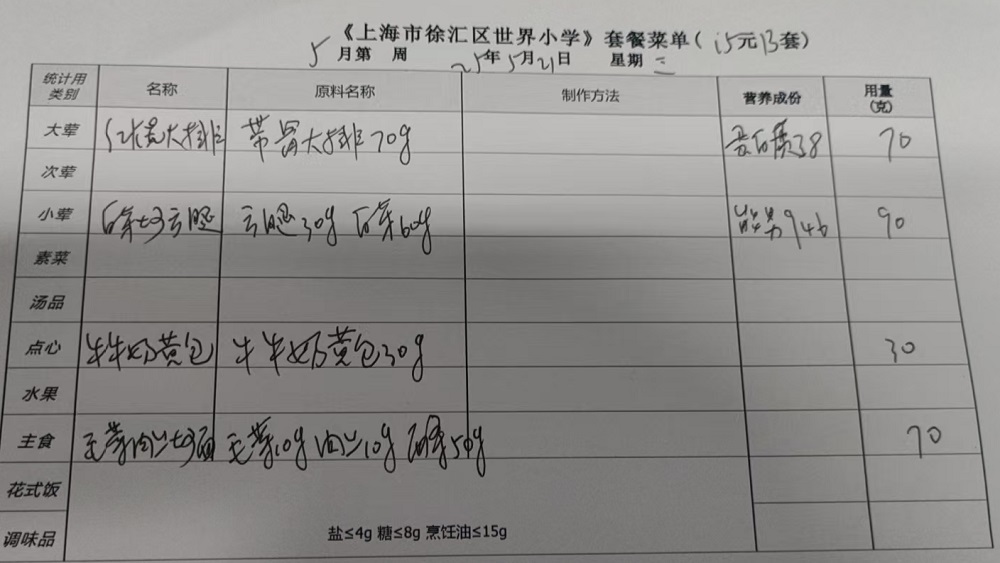 《上海市徐汇区世界小学》套餐菜单(15元B套)
5月第 周 25年5月21日 星期三
统计用类别 名称 原料名称 制作方法 营养成份 用量(克)
大荤 红烧大排 带骨大排70g 蛋白质38 70
次荤
小荤 白菜炒云腿 云腿30g 白菜60g 能量946 90
素菜
汤品
点心 牛牛奶黄包 牛牛奶黄包30g 30
水果
主食 毛菜肉丝炒面 毛菜10g 肉丝10g 50g 70
花式饭
调味品 盐≤4g 糖≤8g 烹饪油≤15g